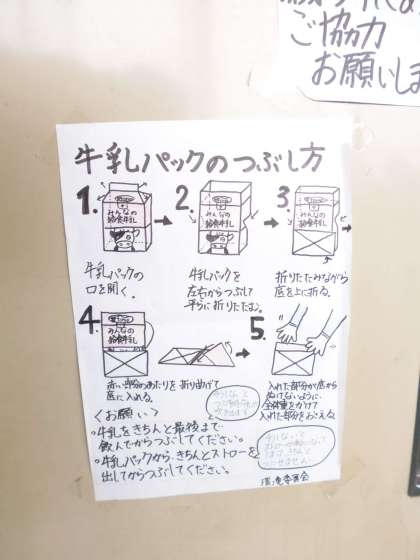 ご協力
お願いしま
牛乳パックのつぶし方
1.
みんなの
給食牛乳
牛乳パックの
口を開く。
2.
みんなの
給食牛乳
牛乳パックを
左右からつぶして
平らに折りたたむ。
3.
みんなの
給食牛乳
折りたたみながら
底を上に折る。
4.
みんなの
給食牛乳
赤い部分のあたりを折り曲げて
底に入れる。
5.
入れた部分が底から
ぬけないように、
全体重をかけて
入れた部分をおさえる
〈お願い〉
・牛乳をきちんと最後まで
飲んでからつぶしてください。
・牛乳パックから、きちんとストローを
出してからつぶしてください。